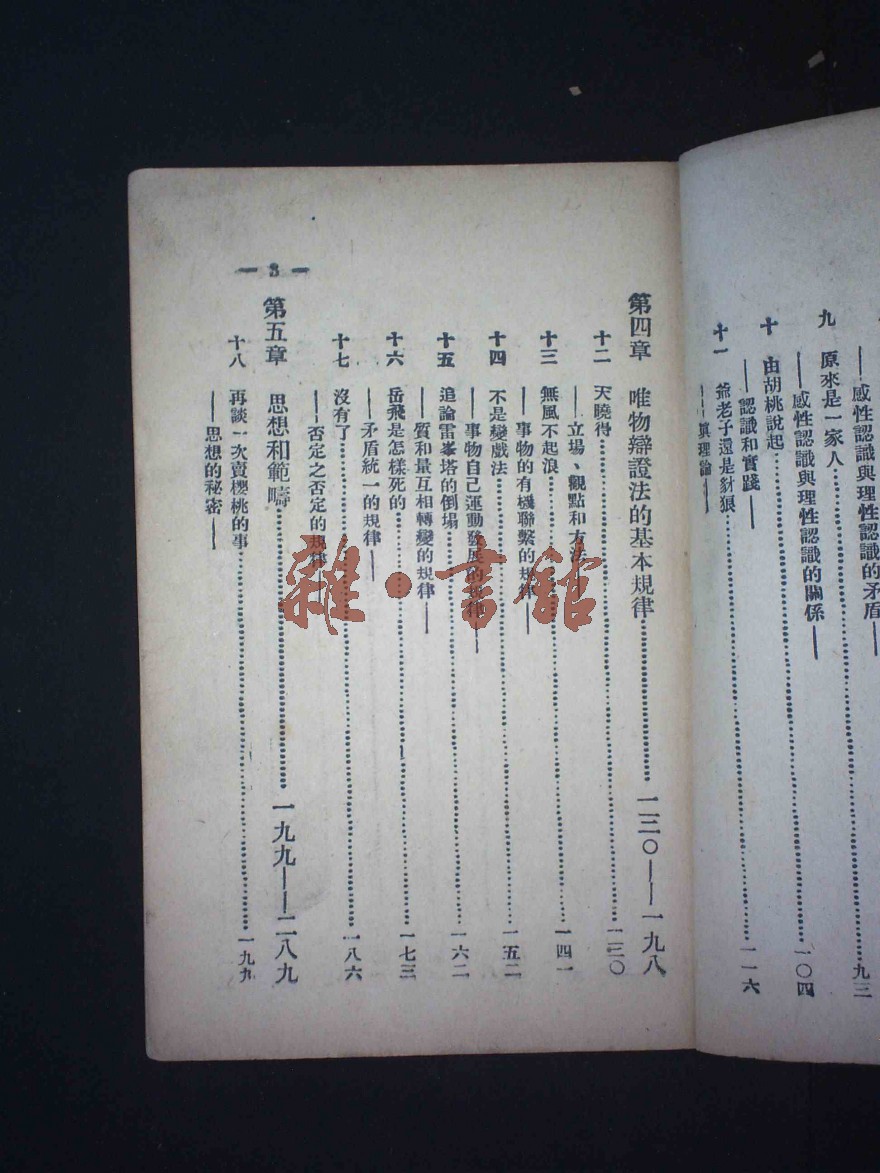 ——感性認識與理性認識的矛盾——
九三
九 原來是一家人
——感性認識與理性認識的關係——
一〇四
十 由胡桃說起
——認識和實踐——
十一 爺老子還是豺狼
一一六
——真理論——
第四章 唯物辯證法的基本規律 一三〇——一九八
十二 天曉得 一三〇
——立場、觀點和方法——
十三 無風不起浪 一四一
——事物的有機聯繫的規律——
十四 不是變戲法 一五二
——事物自己運動發展的規律——
十五 追論雷峯塔的倒塌 一六二
——質和量互相轉變的規律——
十六 岳飛是怎樣死的 一七三
——矛盾統一的規律——
十七 沒有了 一八六
——否定之否定的規律——
第五章 思想和範疇 一九九——二八九
十八 再談一次賣櫻桃的事 一九九
——思想的秘密——
— 3 —
雜·書館